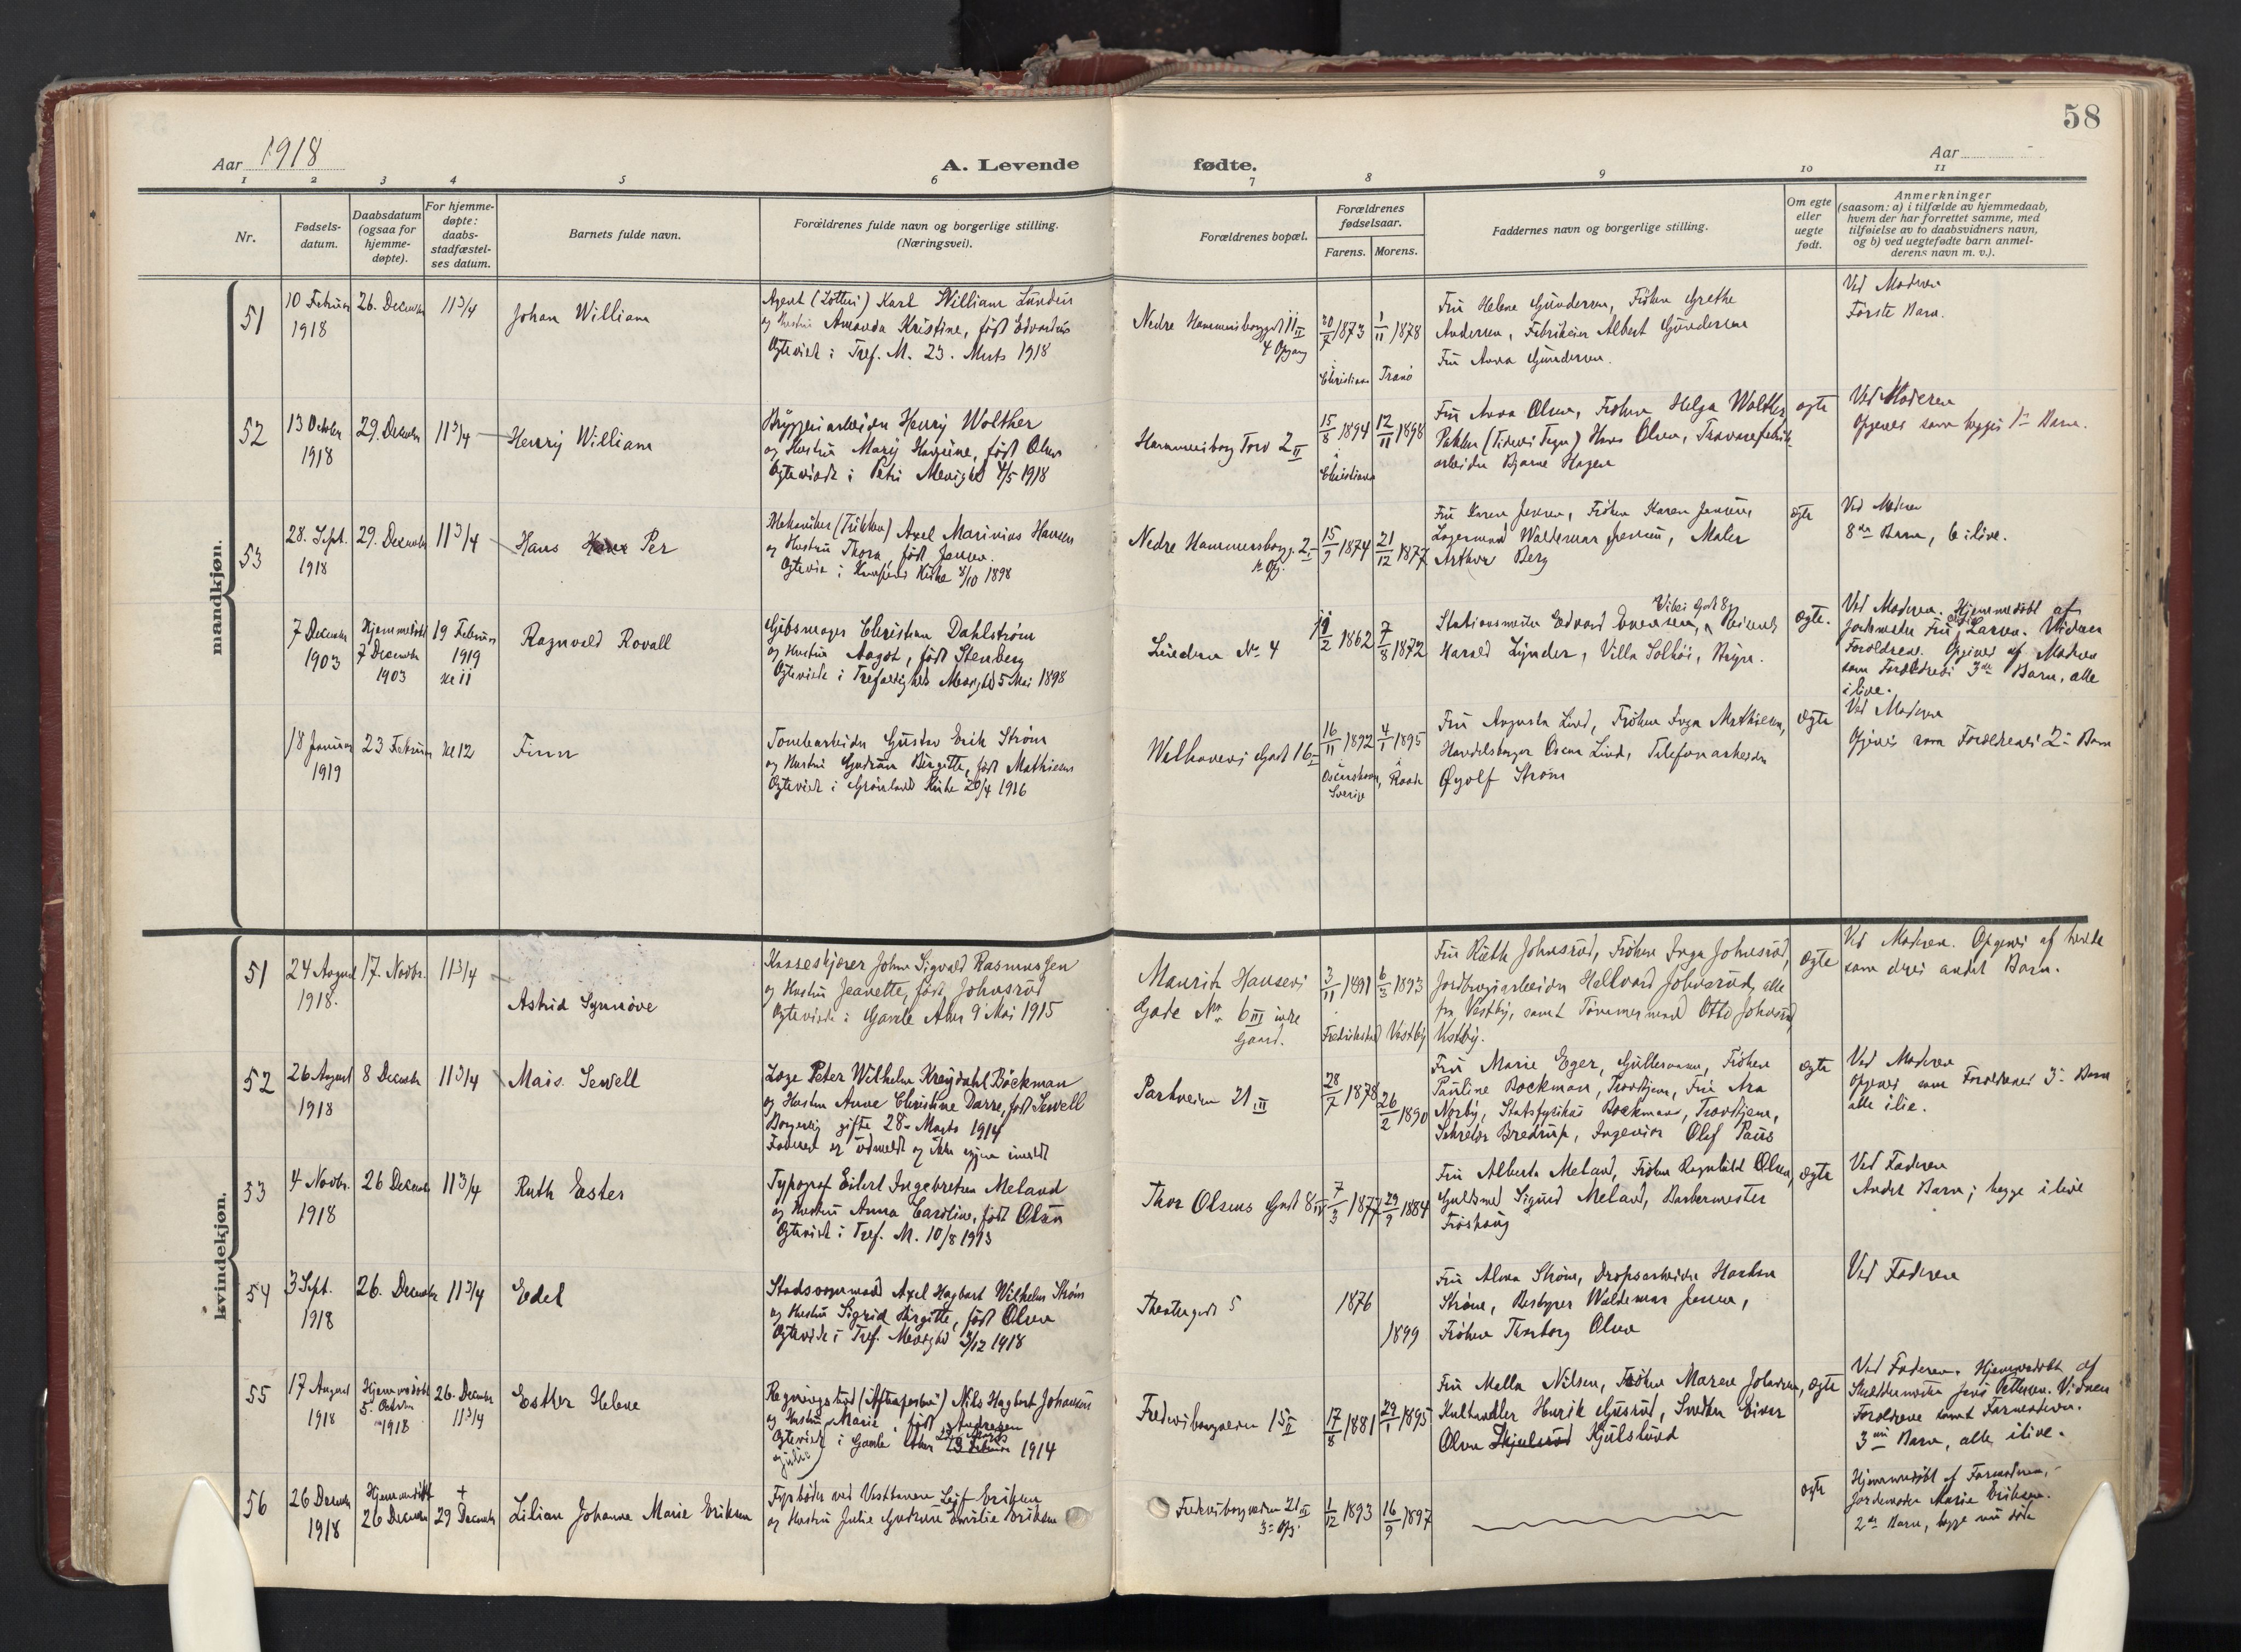 58
Aar 1918
A. Levende
fødte.
Aar
1 2 3 4 5 6 7 8 9 10 11
Nr.
Fødsels-
datum.
Daabsdatum
(ogsaa for
hjemme-
døpte).
For hjemme-
døpte:
daabs-
stadfæstel-
ses datum.
Barnets fulde navn.
Forældrenes fulde navn og borgerlige stilling.
(Næringsvei).
Forældrenes bopæl.
Forældrenes
fødselsaar.
Farens. Morens.
Faddernes navn og borgerlige stilling.
Om egte
eller
uegte
født.
Anmerkninger
(saasom: a) i tilfælde av hjemmedaab,
hvem der har forrettet samme, med
tilføielse av to daabsvidners navn,
og b) ved uegtefødte barn anmel-
derens navn m. v.).
mandkjøn.
51
10 Februar
1918
26. Decembr
11 3/4
Johan William
Agent (Lotteri) Karl William
og Hustru Amanda Kristine, født
Ægteviede i Tref. M. 23. Marts 1918
Nedre Hammersborggd 11 II
4 Opgang
20/7 1873
Christiania
1/11 1878
Tranö
Fru Helene Gundersen, Frøken Grethe
Andersen, Albert Gundersen
Fru Anna Gundersen.
Ved Moderen
Første Barn.
52
13 October
1918
29. Decembr
11 3/4
Henry William
Bryggeriarbeider Henry Wolther
og Hustru Mary, født Olsen
Ægteviede i Petri Menighed 4/5 1918
Hammersborg Torv 2 II
15/8 1894
Christiania
12/11 1898
Fru Anna Olsen, Frøken Helga Wolther
Pakker Hans Olsen,
arbeider Bjarne Hagen
ægte
Ved Moderen
Opgives som begges 1te Barn.
53
28. Sept.
1918
29. Decembr
11 3/4
Hans Per
Mekaniker Axel Marinius Hansen
og Hustru Thora, født Jensen.
Ægteviet i Kirke 8/10 1898
Nedre Hammersborgg. 2
15/9 1874
21/12 1877
Fru Karen Jensen, Frøken Karen Jensen,
Lagermand Waldemar Jensen, Maler
Arthur Berg
ægte
Ved Moderen
8de Barn, 6 ilive.
7 Decembr
1903
Hjemmedøbt
7 Decembr
1903
19 Februar
1919
kl 11
Ragnvald Rovall
Gibsmager Christian Dahlstrøm
og Hustru Aagot, født Stenberg
Ægteviede i Trefoldigheds Menighed 5 Mai 1898
Lunden No 4
2 1862
7/8 1872
Stationsmester Edvard
Harald Lynder, Villa Solhøi,
ægte.
Ved Moderen. Hjemmedøbt af
Jordmoder Fru Larsen. Vidner
Forældrene. Opgives af Moderen
som Forældrenes 3de Barn, alle
ilive.
18 Januar
1919
23 Februar
kl 12
Finn
Tomtearbeider Gustav Erik Strøm
og Hustru Gudrun Birgitte, født Mathisen
Ægteviede i Grønland Kirke 20/4 1916
Welhavens Gade 16
16/11 1892
Sverige
4/1 1895
Raade
Fru Augusta Lind, Frøken Inga Mathisen,
Oscar Lind, Telefonarbeider
Øyolf Strøm
ægte
Ved Moderen
Opgives som Forældrenes 2det Barn
kvindekjøn.
51
24 August
1918.
17. Novbr.
11 3/4
Astrid Synnøve
Kasseskjører Johan Sigvald Rasmussen
og Hustru Jeanette, født Johnsrud
Ægteviede i Gamle Aker 9 Mai 1915
Mauritz Hansens
Gade No 6 III indre
Gaard.
3/11 1891
Fredrikstad
6/3 1893
Vestby
Fru Ruth Johnsrud, Frøken Inga Johnsrud,
Jordbrugsarbeider Hallvard Johnsrud, alle
fra Vestby, samt Tømmermand Otto Johnsrud,
Vestby.
ægte
Ved Moderen. Opgives af
som deres andet Barn.
52
26 August
1918
8 Decembr
11 3/4
Mais Sewell
Læge Peter Wilhelm Kreydahl Bøckman
og Hustru Anne Christine Darre, født Sewell
Borgerlig gifte 28. Marts 1914
Faderen er udmeldt og ikke igjen indmeldt
Parkveien 21 III
28/7 1878
26/2 1890
Fru Marie Eger, Gullkronen, Frøken
Pauline Bøckman, Trondhjem, Fru Ara
Norby, Statsfysikus Bøckman, Trondhjem,
Sekretær Bredrup, Ingeniør Olef Paus
ægte
Ved Moderen
Opgives som Forældrenes 3die Barn
alle ilive.
53
4 Novbr.
1918
26 Decembr
11 3/4
Ruth Ester
Typograf Eilert Ingebretsen Meland
og Hustru Anna Caroline, født Olsen
Ægteviede i Tref. M. 10/8 1913
Thor Olsens Gade 8 IV
7/3 1877
29/9 1884
Fru Alberta Meland, Frøken Ragnhild Olsen,
Guldsmed Sigurd Meland, Barbermester
Frøshaug
ægte
Ved Faderen
Andet Barn; begge ilive
54
3 Sept.
1918
26. Decembr
11 3/4
Edel
Stadsvognmand Axel Hagbart Wilhelm Strøm
og Hustru Sigrid Birgitte, født Olsen
Ægteviede i Tref. Menighed 3/12 1918
Theatergaden 5
1876
1899
Fru Alma Strøm, Dropsarbeider Haakon
Strøm, Bestyrer Waldemar Jensen,
Frøken Thorborg Olsen
Ved Faderen
55
17 August
1918
Hjemmedøbt
5. October
1918
26. Decembr
11 3/4
Esther Helene
(Aftenposten) Nils Hagbart Johansen
og Hustru Marie, født Andresen
Ægteviede i Gamle Aker 1914
Fredensborgveien 15 II
17/8 1881
29/1 1895
Fru Malla Nilsen, Frøken Maren Johansen,
Kulhandler Henrik Gusrud, Snedker Einar
Olsen Skjulsrud Kjulslud
ægte
Ved Faderen. Hjemmedøbt af
Jens Pettersen. Vidner
Forældrene samt Farmoderen.
3die Barn, alle ilive.
56
26 Decembr
1918
Hjemmedøbt
26 Decembr
+
29 Decembr
Lilian Johanne Marie Eriksen
Fyrbøder ved Vestbanen Leif Eriksen
og Hustru Julie Gudrun Emilie Eriksen
Fredensborgveien 21 III
3die Opg.
1/12 1893
16/9 1897
ægte
Hjemmedøbt af Farmoderen,
Jordmoder Marie Eriksen.
2det Barn, begge nu døde